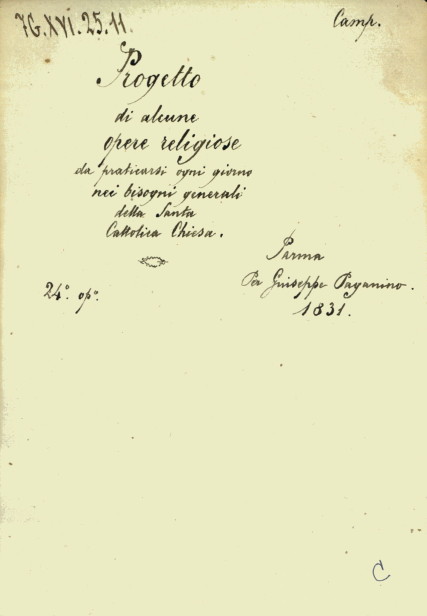 7G.XVI.25.11.
Camp.
Progetto
di alcune
opere religiose
da praticarsi ogni giorno
nei bisogni generali
della Santa
Cattolica Chiesa.
Parma
Per Giuseppe Paganino.
1831.
24°. op°.
C